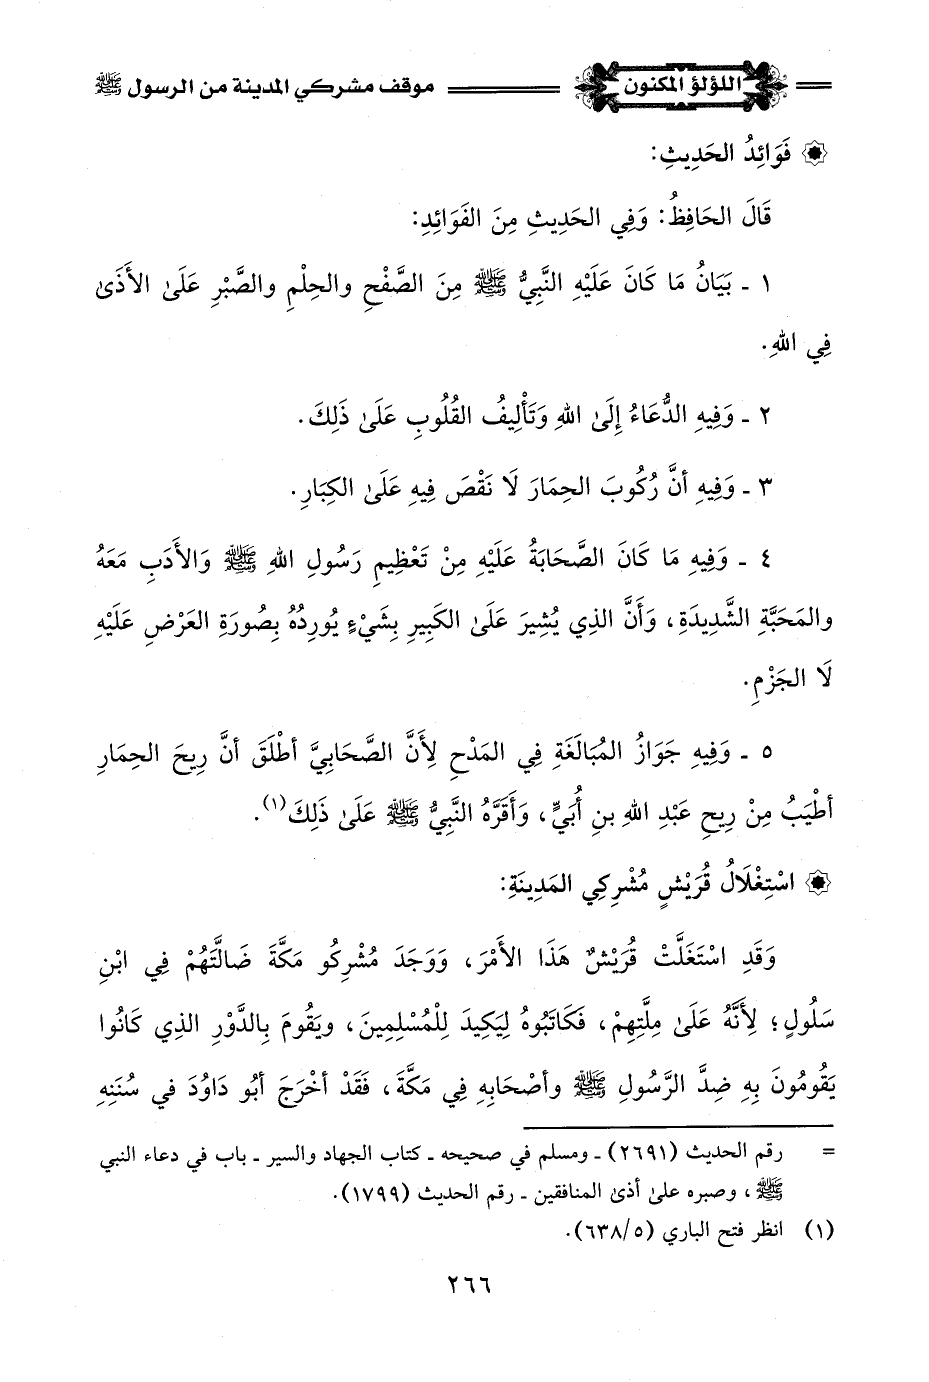 اللؤلؤ المكنون موقف مشركي المدينة من الرسول ﷺ
فَوَائِدُ الحَدِيثِ:
قَالَ الحَافِظُ: وَفِي الحَدِيثِ مِنَ الفَوَائِدِ:
١ ـ بَيَانُ مَا كَانَ عَلَيْهِ النَّبِيُّ ﷺ مِنَ الصَّفْحِ والحِلْمِ والصَّبْرِ عَلَىٰ الأَذَىٰ
فِي اللهِ.
٢ ـ وَفِيهِ الدُّعَاءُ إِلَىٰ اللهِ وَتَأْلِيفُ القُلُوبِ عَلَىٰ ذَلِكَ.
٣ ـ وَفِيهِ أنَّ رُكُوبَ الحِمَارَ لَا نَقْصَ فِيهِ عَلَىٰ الكِبَارِ.
٤ ـ وَفِيهِ مَا كَانَ الصَّحَابَةُ عَلَيْهِ مِنْ تَعْظِيمِ رَسُولِ اللهِ ﷺ وَالأَدَبِ مَعَهُ
والمَحَبَّةِ الشَّدِيدَةِ، وَأَنَّ الذِي يُشِيرَ عَلَىٰ الكَبِيرِ بِشَيْءٍ يُورِدُهُ بِصُورَةِ العَرْضِ عَلَيْهِ
لَا الجَزْمِ.
٥ ـ وَفِيهِ جَوَازُ المُبَالَغَةِ فِي المَدْحِ لِأَنَّ الصَّحَابِيَّ أطْلَقَ أنَّ رِيحَ الحِمَارِ
أطْيَبُ مِنْ رِيحِ عَبْدِ اللهِ بنِ أُبَيٍّ، وَأَقَرَّهُ النَّبِيُّ ﷺ عَلَىٰ ذَلِكَ(١).
اسْتِغْلَالُ قُرَيْشٍ مُشْرِكِي المَدِينَةِ:
وَقَدِ اسْتَغَلَّتْ قُرَيْشٌ هَذَا الأَمْرَ، وَوَجَدَ مُشْرِكُو مَكَّةَ ضَالَّتَهُمْ فِي ابْنِ
سَلُولٍ؛ لِأَنَّهُ عَلَىٰ مِلَّتِهِمْ، فَكَاتَبُوهُ لِيَكِيدَ لِلْمُسْلِمِينَ، ويَقُومَ بِالدَّوْرِ الذِي كَانُوا
يَقُومُونَ بِهِ ضِدَّ الرَّسُولِ ﷺ وأصْحَابِهِ فِي مَكَّةَ، فَقَدْ أخْرَجَ أبُو دَاوُدَ في سُنَنِهِ
= رقم الحديث (٢٦٩١) ـ ومسلم في صحيحه ـ كتاب الجهاد والسير ـ باب في دعاء النبي
ﷺ، وصبره علىٰ أذىٰ المنافقين ـ رقم الحديث (١٧٩٩).
(١) انظر فتح الباري (٦٣٨/٥).
٢٦٦